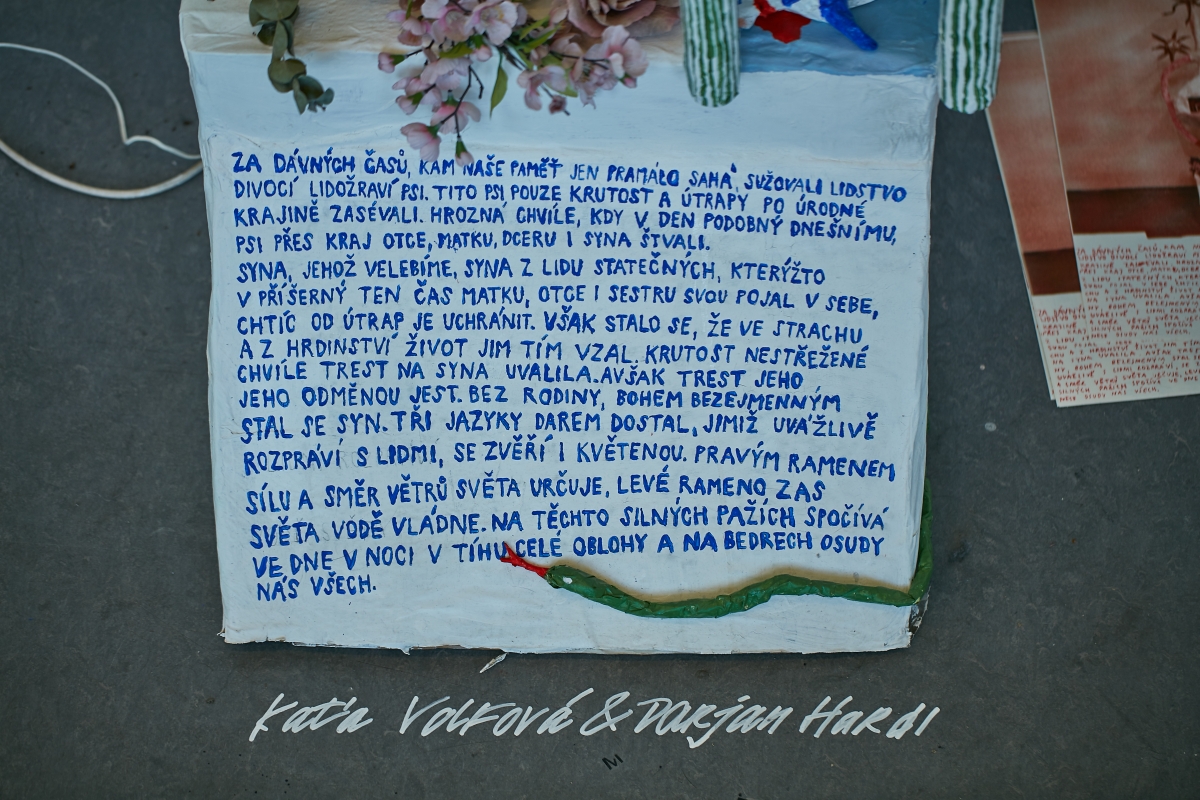 ZA DÁVNÝCH ČASŮ, KAM NAŠE PAMĚŤ JEN PRAMÁLO SAHÁ, SUŽOVALI LIDSTVO
DIVOCÍ LIDOŽRAVÍ PSI. TITO PSI POUZE KRUTOST A ÚTRAPY PO ÚRODNÉ
KRAJINĚ ZASÉVALI. HROZNÁ CHVÍLE, KDY V DEN PODOBNÝ DNEŠNÍMU,
PSI PŘES KRAJ OTCE, MATKU, DCERU I SYNA ŠTVALI.
SYNA, JEHOŽ VELEBÍME, SYNA Z LIDU STATEČNÝCH, KTERÝŽTO
V PŘÍŠERNÝ TEN ČAS MATKU, OTCE I SESTRU SVOU POJAL V SEBE,
CHTÍC OD ÚTRAP JE UCHRÁNIT. VŠAK STALO SE, ŽE VE STRACHU
A Z HRDINSTVÍ ŽIVOT JIM TÍM VZAL. KRUTOST NESTŘEŽENÉ
CHVÍLE TREST NA SYNA UVALILA. AVŠAK TREST JEHO
JEHO ODMĚNOU JEST. BEZ RODINY, BOHEM BEZEJMENNÝM
STAL SE SYN. TŘI JAZYKY DAREM DOSTAL, JIMIŽ UVÁŽLIVĚ
ROZPRAVÍ S LIDMI, SE ZVĚŘÍ I KVĚTENOU. PRAVÝM RAMENEM
SÍLU A SMĚR VĚTRŮ SVĚTA URČUJE, LEVÉ RAMENO ZAS
SVĚTA VODĚ VLÁDNE. NA TĚCHTO SILNÝCH PAŽÍCH SPOČÍVÁ
VE DNE V NOCI V TÍHU CELÉ OBLOHY A NA BEDRECH OSUDY
NÁS VŠECH.
Kaťa Volfová & Darjan Hardi